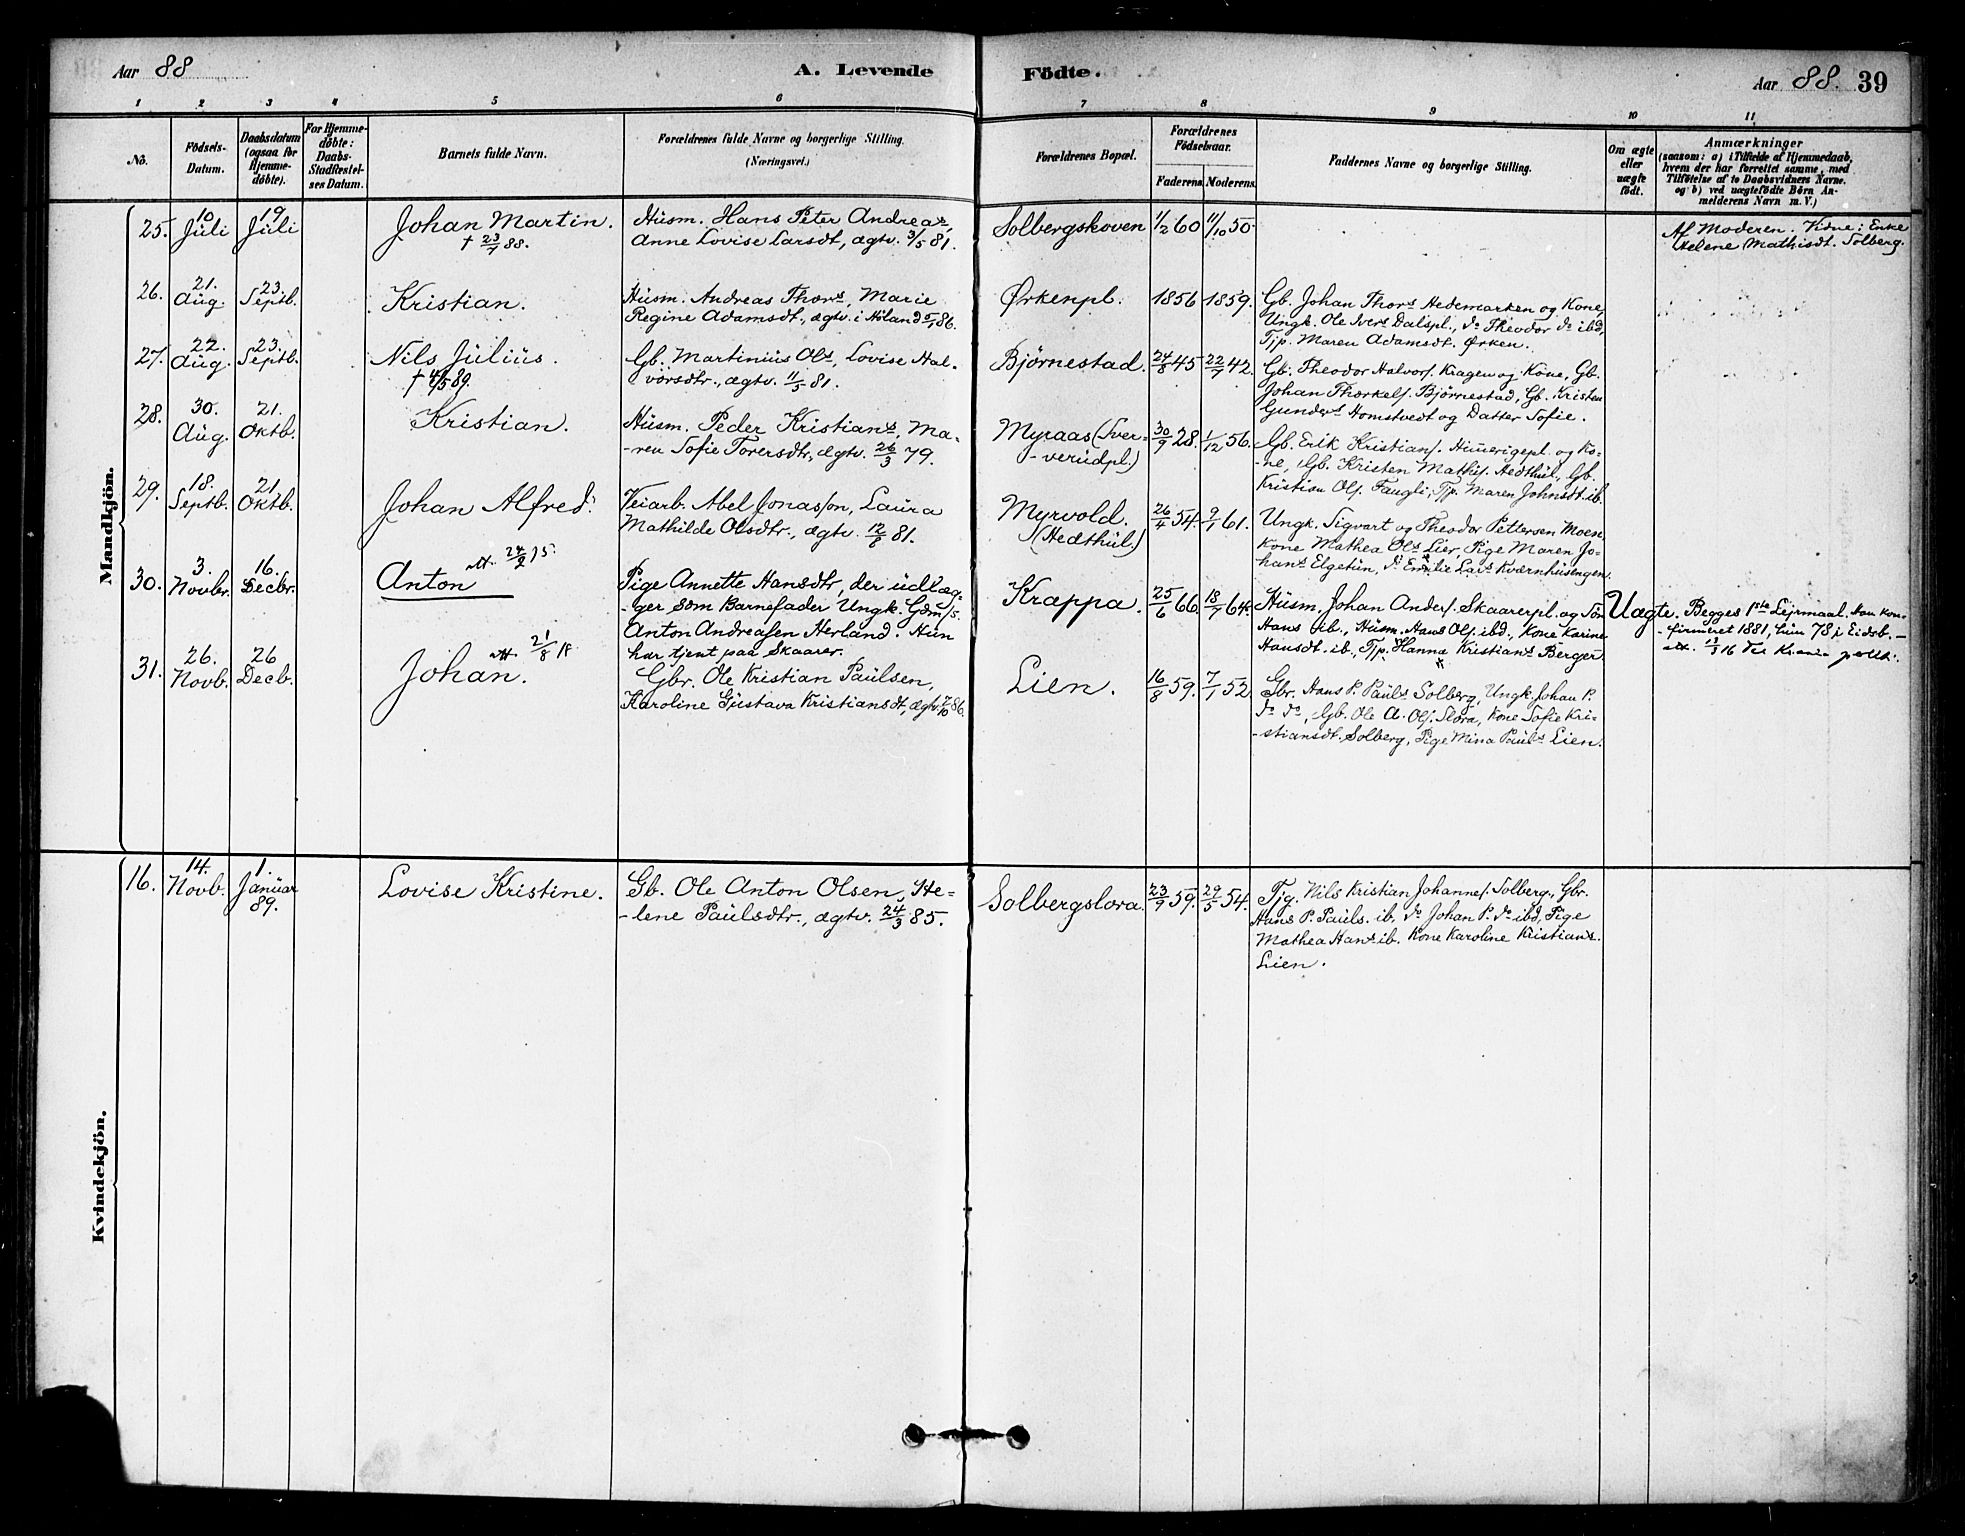 Aar 88
A. Levende
Födte.
Aar 88. 39
1 2 3 4 5 6 7 8 9 10 11
No.
Födsels-
Datum.
Daabsdatum
(ogsaa for
Hjemme-
döbte).
For Hjemme-
döbte:
Daabs-
Stadfæstel-
ses Datum.
Barnets fulde Navn.
Forældrenes fulde Navne og borgerlige Stilling.
(Næringsvei.)
Forældrenes Bopæl.
Forældrenes
Födselsaar.
Faderens. Moderens.
Faddernes Navne og borgerlige Stilling.
Om ægte
eller
uægte
födt.
Anmærkninger
(saasom: a) i Tilfælde af Hjemmedaab,
hvem der har forrettet samme, med
Tilföielse af to Daabsvidners Navne.
og b) ved uægtefödte Börn An-
melderens Navn m. V.)
Mandkjön.
25. 10 Juli 19 Juli
Johan Martin.
† 23/7 88.
Husm. Hans Peter Andreas,
Anne Lovise Larsdt, ægtv. 3/5 81.
Solbergskoven 1/2 60 11/10 50
Af Moderen. Vidne: Enke
Helene Mathisdt. Solberg.
26. 21. Aug. 23. Septb.
Kristian.
Husm. Andreas Thors, Marie
Regine Adamsdt., ægtv. i Höland 86.
Ørkenpl. 1856 1859.
Gb. Johan Thors Hedemarken og Kone,
Ungk. Ole Ivers Dalspl., do Theodor do ibd,
Tjp. Maren Adamsdt. Ørken.
27. 22. Aug. 23. Septb.
Nils Julius.
† 4/5 89.
Gb. Martinius Ols, Lovise Hal-
vorsdtr., ægtv. 11/3 81.
Bjørnestad. 24/8 45 22/7 42.
Gb. Theodor Halvors. Kragen og Kone, Gb.
Johan Thorkels. Bjørnestad, Gb. Kristen
Gunders Homstvedt og Datter Sofie.
28. 30. Aug. 21. Oktb.
Kristian.
Husm. Peder Kristians, Ma-
-ren Sofie Torersdtr., ægtv. 26/3 79.
Myraas (Sver-
-verudpl.) 30/9 28. 1/12 56.
Gb. Erik Kristians. og Ko-
-ne, Gb. Kristen Mathis. Hedthul, Gb.
Kristian Ols. Faugli, Tjp. Maren Johnsdt. ib.
29. 18. Septb. 21. Oktb.
Johan Alfred.
Veiarb. Abel Jonasson, Laura
Mathilde Olsdtr., ægtv. 12/8 81.
Myrvold.
(Hedthul.) 26/4 54. 9/1 61.
Ungk. Sigvart og Theodor Pettersen Moen,
Kone Mathea Ols Lier, Pige Maren Jo-
hans Elgetun, do Emilie Lars Kværnhusengen.
30. 3. Novbr. 16. Decbr.
Anton
att. 24/2 15.
Pige Annette Hansdtr, der udlæg-
-ger som Barnefader Ungk. Gdm/s.
Anton Andreasen Herland. Hun
har tjent paa Skaarer.
Krappa. 25/6 66. 18/7 64.
Husm. Johan Anders. Skaarerpl. og Søn
Hans ib., Husm. Hans Ols. ibd., Kone Karine
Hansdt. ib., Tjp. Hanna Kristians Berger.
Uægte.
Begges 1ste Leirmaal. Han kon-
-firmeret 1881, hun 78 i Eidsb. —
31. 26. Novb. 26 Decb.
Johan.
att. 21/8 18
Gbr. Ole Kristian Paulsen,
Karoline Gustava Kristiansdt, ægtv. 7/10 86.
Lien. 16/8 59. 7/1 52
Gbr. Hans P. Pauls Solberg, Ungk. Johan P.
do do, Gb. Ole A. Ols. Slora, Kone Sofie Kri-
-stiansdt. Solberg, Pige Mina Pauls Lien.
Kvindekjön.
16. 14. Novb. 1. Januar 89.
Lovise Kristine.
Gb. Ole Anton Olsen, He-
-lene Paulsdtr., ægtv. 24/3 85.
Solbergslora. 23/9 59. 29/5 54.
Tjg. Nils Kristian Johannes. Solberg, Gbr.
Hans P. Pauls. ib. do Johan P. do ibd, Pige
Mathea Hans ib. Kone Karoline Kristians.
Lien.